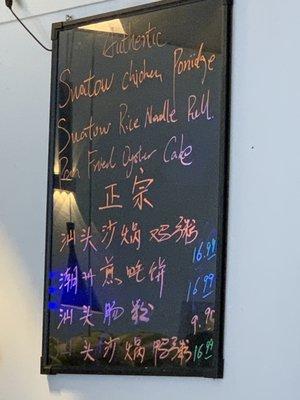 Authentic
Swatow chicken Porridge
Swatow Rice Noodle Roll.
Pan Fried Oyster Cake
正宗
汕头沙煱鸡粥 16.99
潮州煎蚝饼 16.99
汕头肠粉 9.95
头沙煱鸭粥 16.99